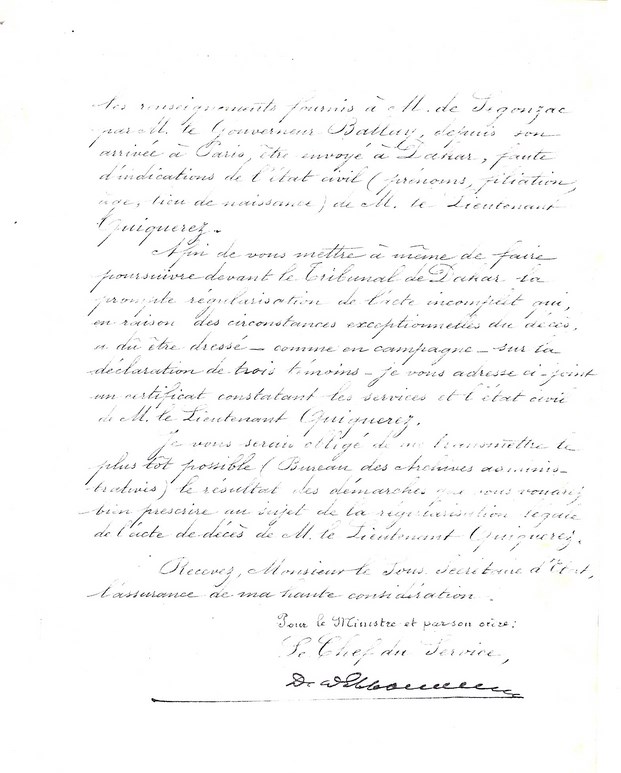 les renseignements fournis à M. de Segonzac
par M. le Gouverneur Ballay, depuis son
arrivée à Paris, être envoyé à Dakar, faute
d'indications de l'état civil (prénoms, filiation,
âge, lieu de naissance) de M. le Lieutenant
Quiquerez.
Afin de vous mettre à même de faire
poursuivre devant le Tribunal de Dakar la
prompte régularisation de l'acte incomplet qui,
en raison des circonstances exceptionnelles du décès,
a dû être dressé – comme en campagne – sur la
déclaration de trois témoins – je vous adresse ci-joint
un certificat constatant les services et l'état civil
de M. le Lieutenant Quiquerez.
Je vous serais obligé de me transmettre le
plus tôt possible (Bureau des Archives adminis-
tratives) le résultat des démarches que vous voudrez
bien prescrire au sujet de la régularisation légale
de l'acte de décès de M. le Lieutenant Quiquerez.
Recevez, Monsieur le Sous Secrétaire d'Etat,
l'assurance de ma haute considération.
Pour le Ministre et par son ordre:
Le Chef du Service,